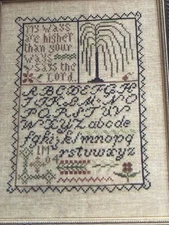 My ways
are higher
than your
ways
says the
Lord.
ABCDEFGH
IJKLMNOP
QRSTUV
WXYZabcde
fghijklmnopq
rstuvwxyz